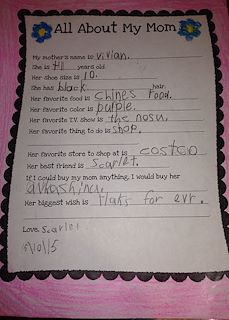 All About My Mom
My mother's name is Vivian.
She is 41 years old.
Her shoe size is 10.
She has black hair.
Her favorite food is chines Food.
Her favorite color is purple.
Her favorite T.V. show is the nosu.
Her favorite thing to do is shop.
Her favorite store to shop at is costco
Her best friend is Scarlet.
If I could buy my mom anything, I would buy her
Her biggest wish is for evr.
Love, Scarlet